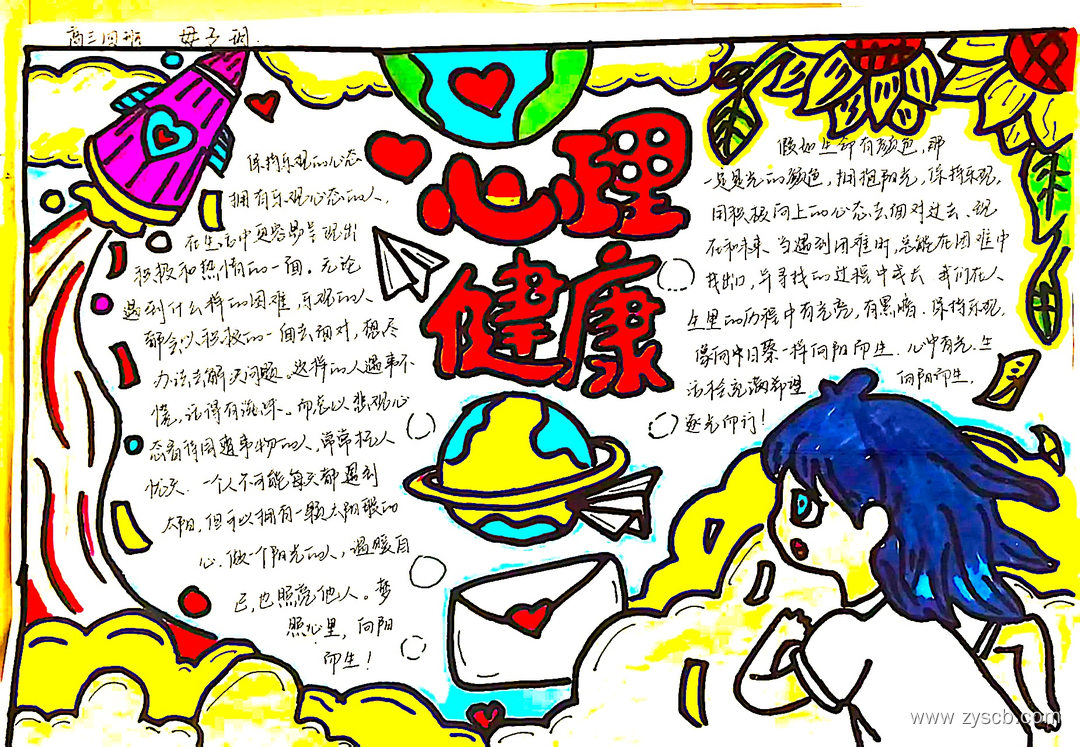 高三四班
心理
健康
保持乐观的心态
拥有乐观心态的人，
在生活中更容易呈现出
积极和热情的一面。无论
遇到什么样的困难，乐观的人
都会以积极的一面去面对，想尽
办法去解决问题。这样的人遇事不
慌，记得有滋味。而总以悲观心
态看待周遭事物的人，常常杞人
忧天。一个人不可能每天都遇到
太阳，但可以拥有一颗太阳般的
心，做一个阳光的人，温暖自
己，也照亮他人。梦
照心里，向阳
而生！
假如生命有颜色，那
一定是光的颜色，拥抱阳光，保持乐观，
用积极向上的心态去面对过去、现
在和未来。当遇到困难时，总能在困难中
找出口，在寻找的过程中 我们在人
生里的历程中有光亮，有黑暗。保持乐观，
像向日葵一样向阳而生。心中有光，生
活径充满希望 向阳而生，
逐光而行！
www.zyscb.com